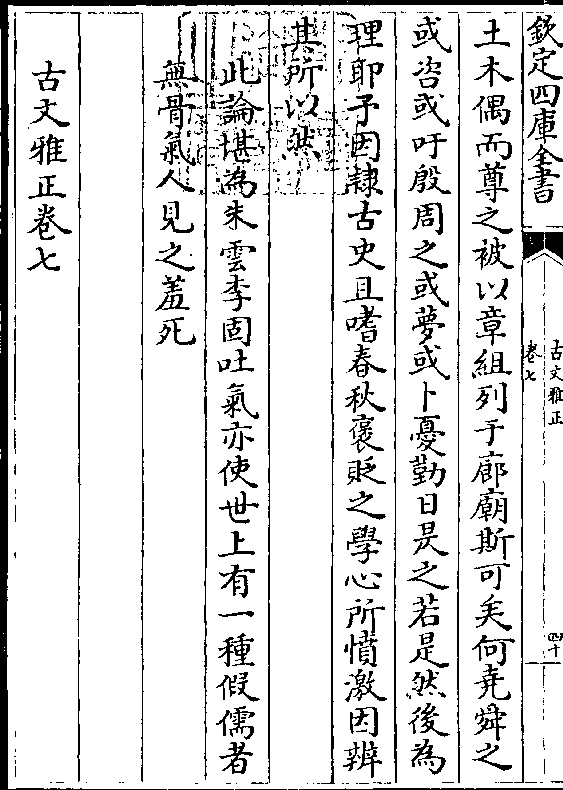 欽定四庫全書
古文雅正
卷七
四十
土木偶而尊之被以章組列于廊廟斯可矣何堯舜之
或咨或吁殷周之或夢或卜憂勤日昃之若是然後為
理耶予因隷古史且嗜春秋褒貶之學心所憤激因辨
其所以然
此論堪為朱雲李固吐氣亦使世上有一種假儒者
無骨氣人見之羞死
古文雅正卷七